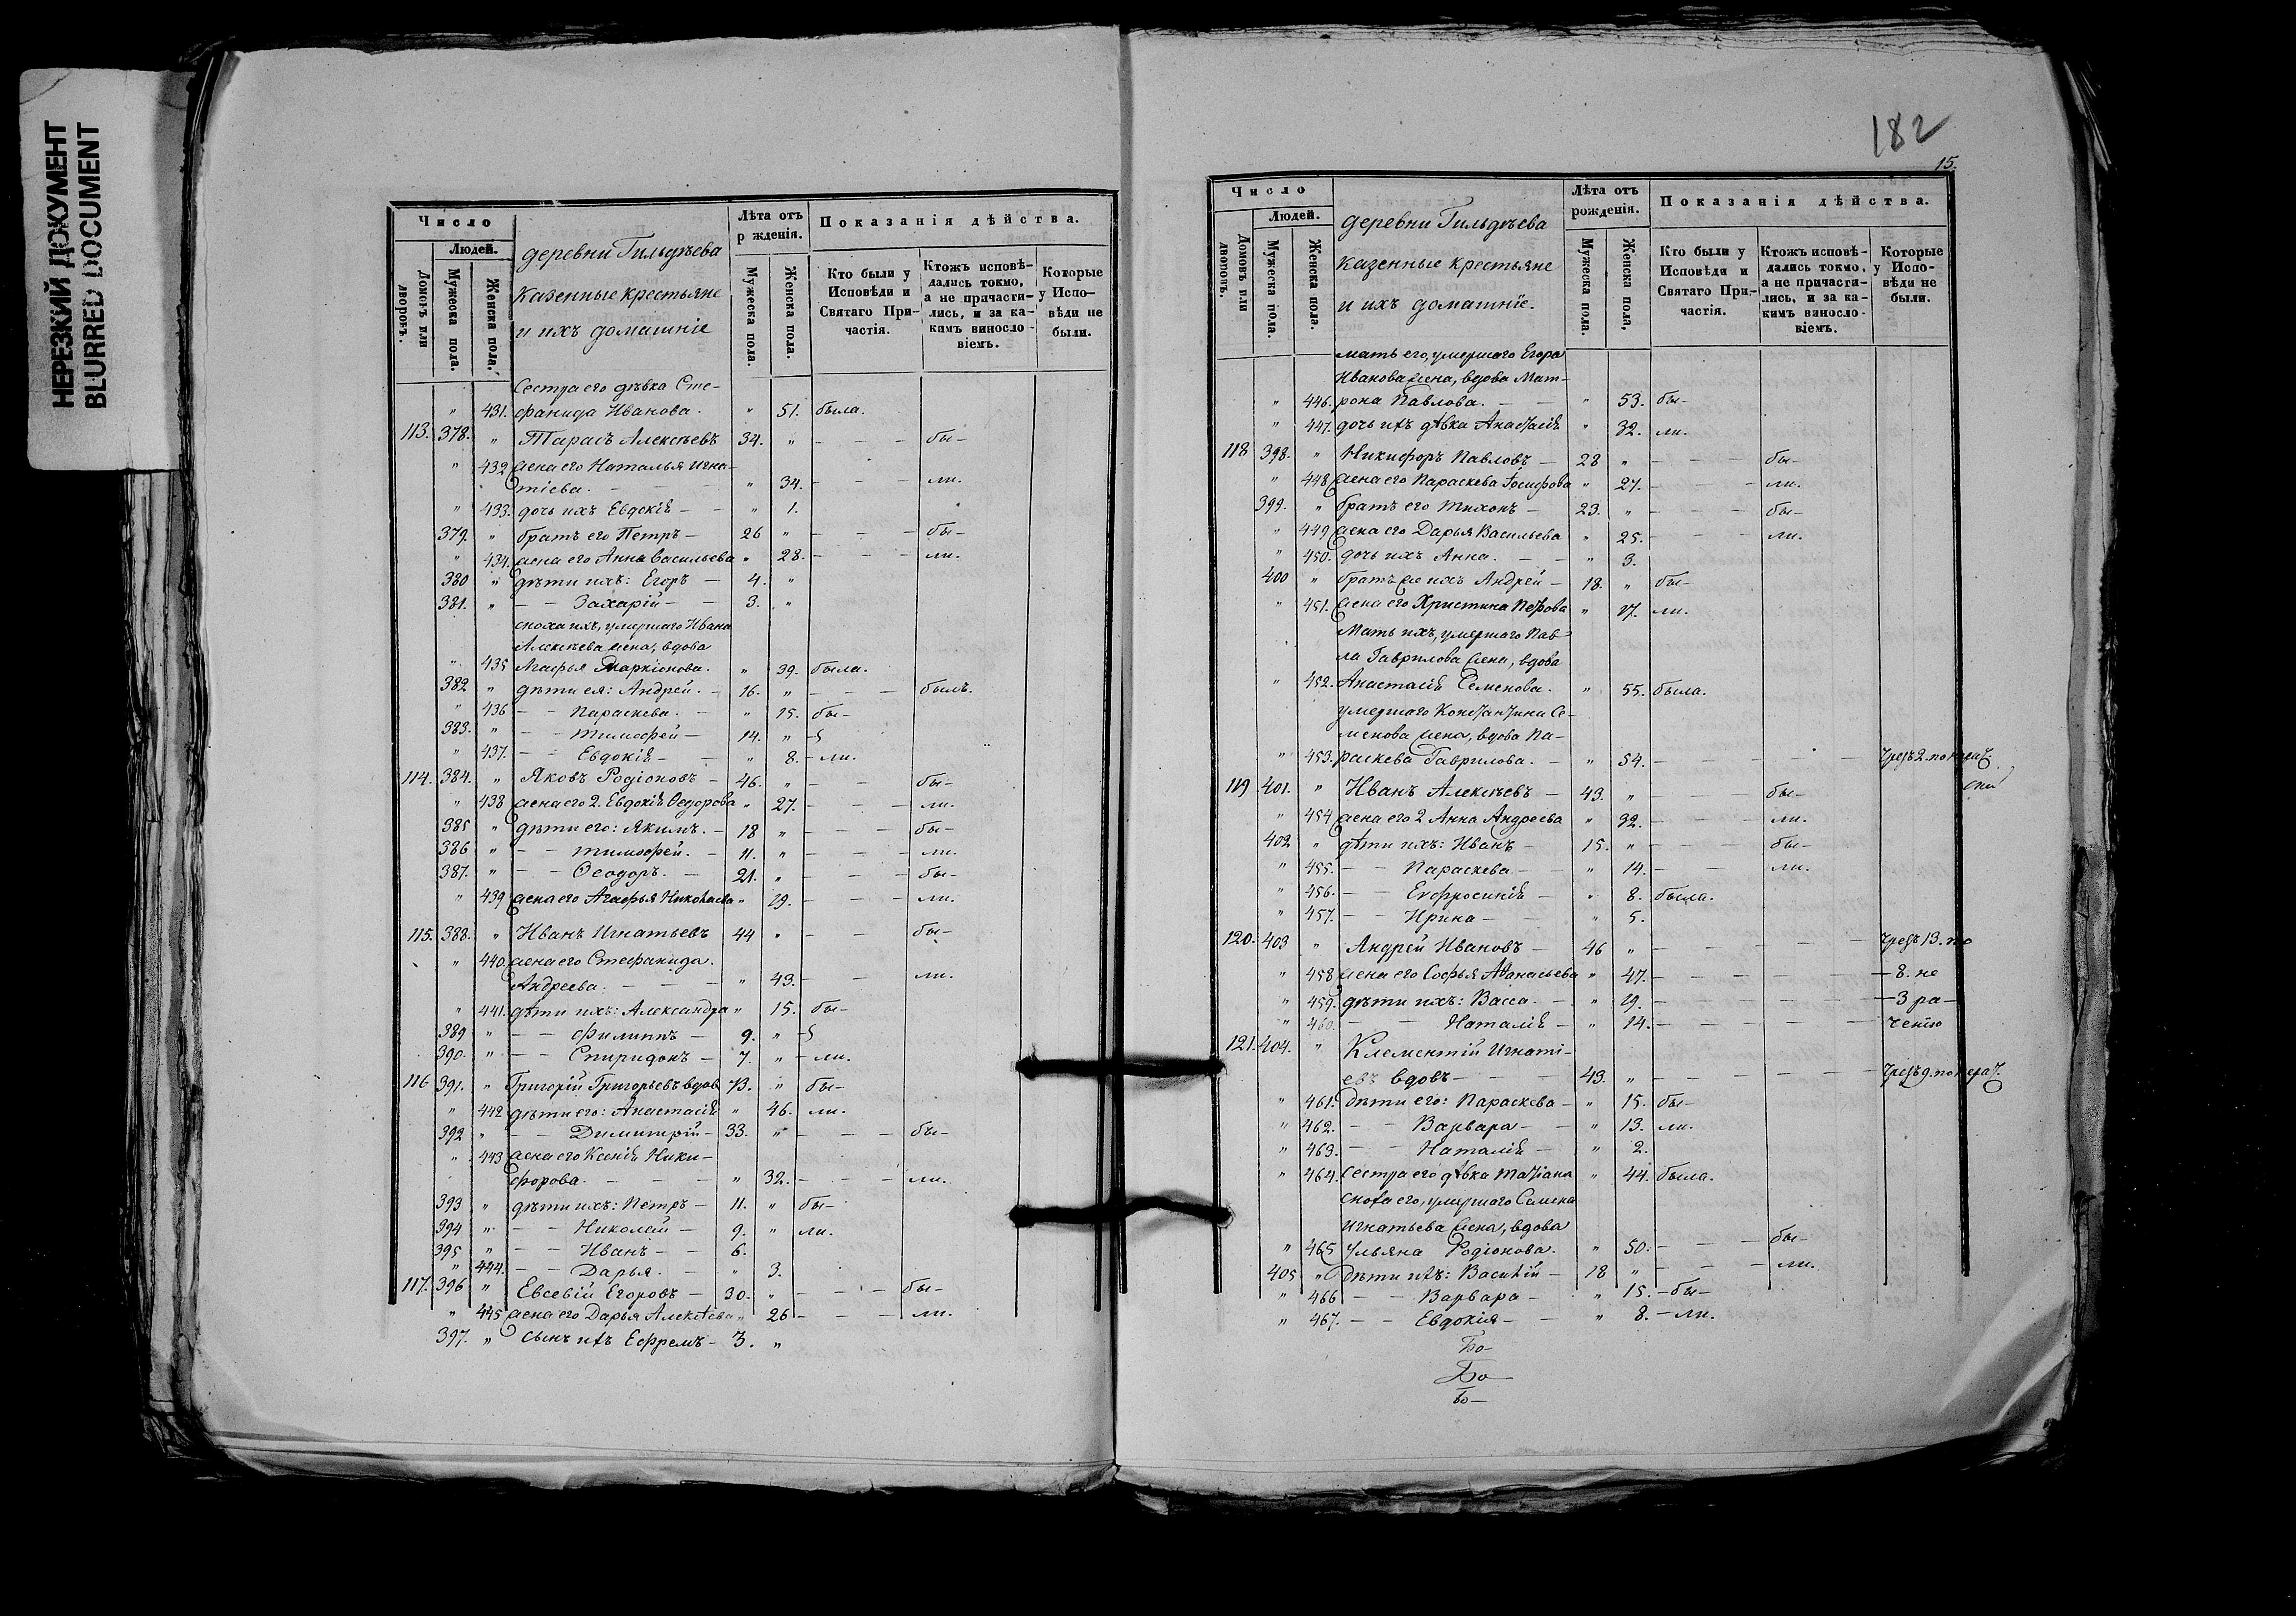 НЕРЕЗКИЙ ДОКУМЕНТ
BLURRED DOCUMENT
Число
Людей.
Домовъ или дворовъ.
Мужеска пола.
Женска пола.
деревни Гильдѣева
казенные крестьяне
и ихъ домашніе
Лѣта отъ
р жденія.
Мужеска пола.
Женска пола.
Показанія дѣйства.
Кто были у Исповѣди и Святаго При-частія.
Ктожъ исповѣ-дались токмо, а не причасти-лись, и за ка-кимъ виносло-віемъ.
Которые у Испо-вѣди не были.
Сестра его дѣвка Сте-
" 431. фанида Иванова. " 51. была.
113. 378. " Тарасъ Алексѣевъ 34. " - - - бы-
" 432 жена его Наталья Игна-
тіева. - - - " 34. - - - ли.
" 433. дочь ихъ Евдокія - - " 1.
379. " братъ его Петръ - 26 " - - - бы-
" 434. жена его Анна Васильева " 28. - - - ли.
380 " дѣти ихъ: Егоръ - 4. "
381. " - - Захарій - - 3. "
сноха ихъ, умершаго Ивана
Алексѣева жена, вдова
" 435 Агафья Маркіонова. " 39. была.
382 " дѣти ея: Андрей. - 16. " - - - былъ.
" 436 - - Параскева. - " 15. бы-
383. " - - Тимофей - 14. "
" 437. - - Евдокія - - " 8. - ли.
114. 384. " Яковъ Родіоновъ - 46. " - - бы-
" 438 жена его 2. Евдокія Ѳедорова " 27. - - - ли.
385 " дѣти его: Якимъ. - 18 " - - - бы-
386 " - - Тимофей. - 11. " - - - ли.
387. " - - Ѳеодоръ. - 21. " - - - бы-
" 439 жена его Агафья Николаева " 19. - - - ли.
115. 388. " Иванъ Игнатьевъ 44 " - - бы-
" 440. жена его Стефанида.
Андреева. - - - " 43. - - ли.
" 441. дѣти ихъ: Александра " 15. бы-
389 " - - Филиппъ - 9. "
390. " - - Спиридонъ - 7. " - ли.
116 391. " Григорій Григорьевъ вдов 73. " бы-
" 442 дѣти его: Анастасія " 46. ли.
392 " - - Димитрій - 33. " - - - бы-
" 443 жена его Ксенія Ники-
форова. - - - " 32. - - - ли.
393 " дѣти ихъ: Петръ - 11. " бы-
394 " - - Николай - 9. " ли.
395 " - - Иванъ - - 6.
" 444. - - Дарья. - " 3.
117. 396 " Евсевій Егоровъ - 30. " - - - бы-
" 445 жена его Дарья Алексѣева " 26 - - - ли.
397. " сынъ ихъ Ефремъ - 3. "
182
15.
Число
Людей.
Домовъ или дворовъ.
Мужеска пола.
Женска пола.
деревни Гильдѣева
казенные крестьяне
и ихъ домашніе.
Лѣта отъ
рожденія.
Мужеска пола.
Женска пола,
Показанія дѣйства.
Кто были у Исповѣди и Святаго При-частія.
Ктожъ исповѣ-дались токмо, а не причасти-лись, и за ка-кимъ винosло-віемъ.
Которые у Испо-вѣди не были.
мать его, умершаго Егора
Иванова жена, вдова Мат-
" 446. рона Павлова. - - " 53. бы-
" 447. дочь ихъ дѣвка Анастасія " 32. ли.
118 398. " Никифоръ Павловъ - 28 " - - - бы-
" 448 жена его Параскева Іосифова " 27. - - - ли.
399. " братъ его Тихонъ - 23. " - - - бы-
" 449 жена его Дарья Васильева " 25. - - - ли.
" 450. дочь ихъ Анна. - - " 3.
400 " братъ же ихъ Андрей - 18. " бы-
" 451. жена его Христина Петрова " 17. ли.
Мать ихъ, умершаго Пав-
ла Гаврилова жена, вдова
" 452. Анастасія Семенова. " 55. была.
умершаго Константина Се-
менова жена, вдова Па-
" 453. раскева Гаврилова. - " 54. - - - - - - чрезъ 2. по нерач
119 401. " Иванъ Алексѣевъ - 43. " - - - бы-
" 454 жена его 2 Анна Андреева " 32. - - - ли.
402 " дѣти ихъ: Иванъ - 15. " - - - бы-
" 455. - - Параскева - - " 14. - - ли.
" 456. - - Евфросинія - " 8. была.
" 457. - - Ирина - - " 5.
120. 403 " Андрей Ивановъ - 46 " - - - - - - чрезъ 13. по
" 458 жена его Софья Аѳанасьева " 47. - - - - - - 8. не
" 459. дѣти ихъ: Васса. - " 19. - - - - - - 3 ра-
" 460. - - Наталія - " 14. - - - - - - ченію
121. 404. " Климентій Игнаті-
евъ вдовъ - - - 43. " - - - - - - чрезъ 9. по нерач.
" 461. Дѣти его: Параскева - " 15. бы-
" 462. - - Варвара - - " 13. ли.
" 463. - - Наталія - " 2.
" 464. Сестра его дѣвка Татіана " 44. была.
Сноха его, умершаго Семена
Игнатьева жена, вдова
" 465 Ульяна Родіонова. " 50. - - - бы-
405 " Дѣти ихъ: Василій - 18 " - - - ли.
" 466 - - Варвара - " 15. - бы-
" 467. - - Евдокія - - " 8. - ли.
Бо-
Бо-
Бо-